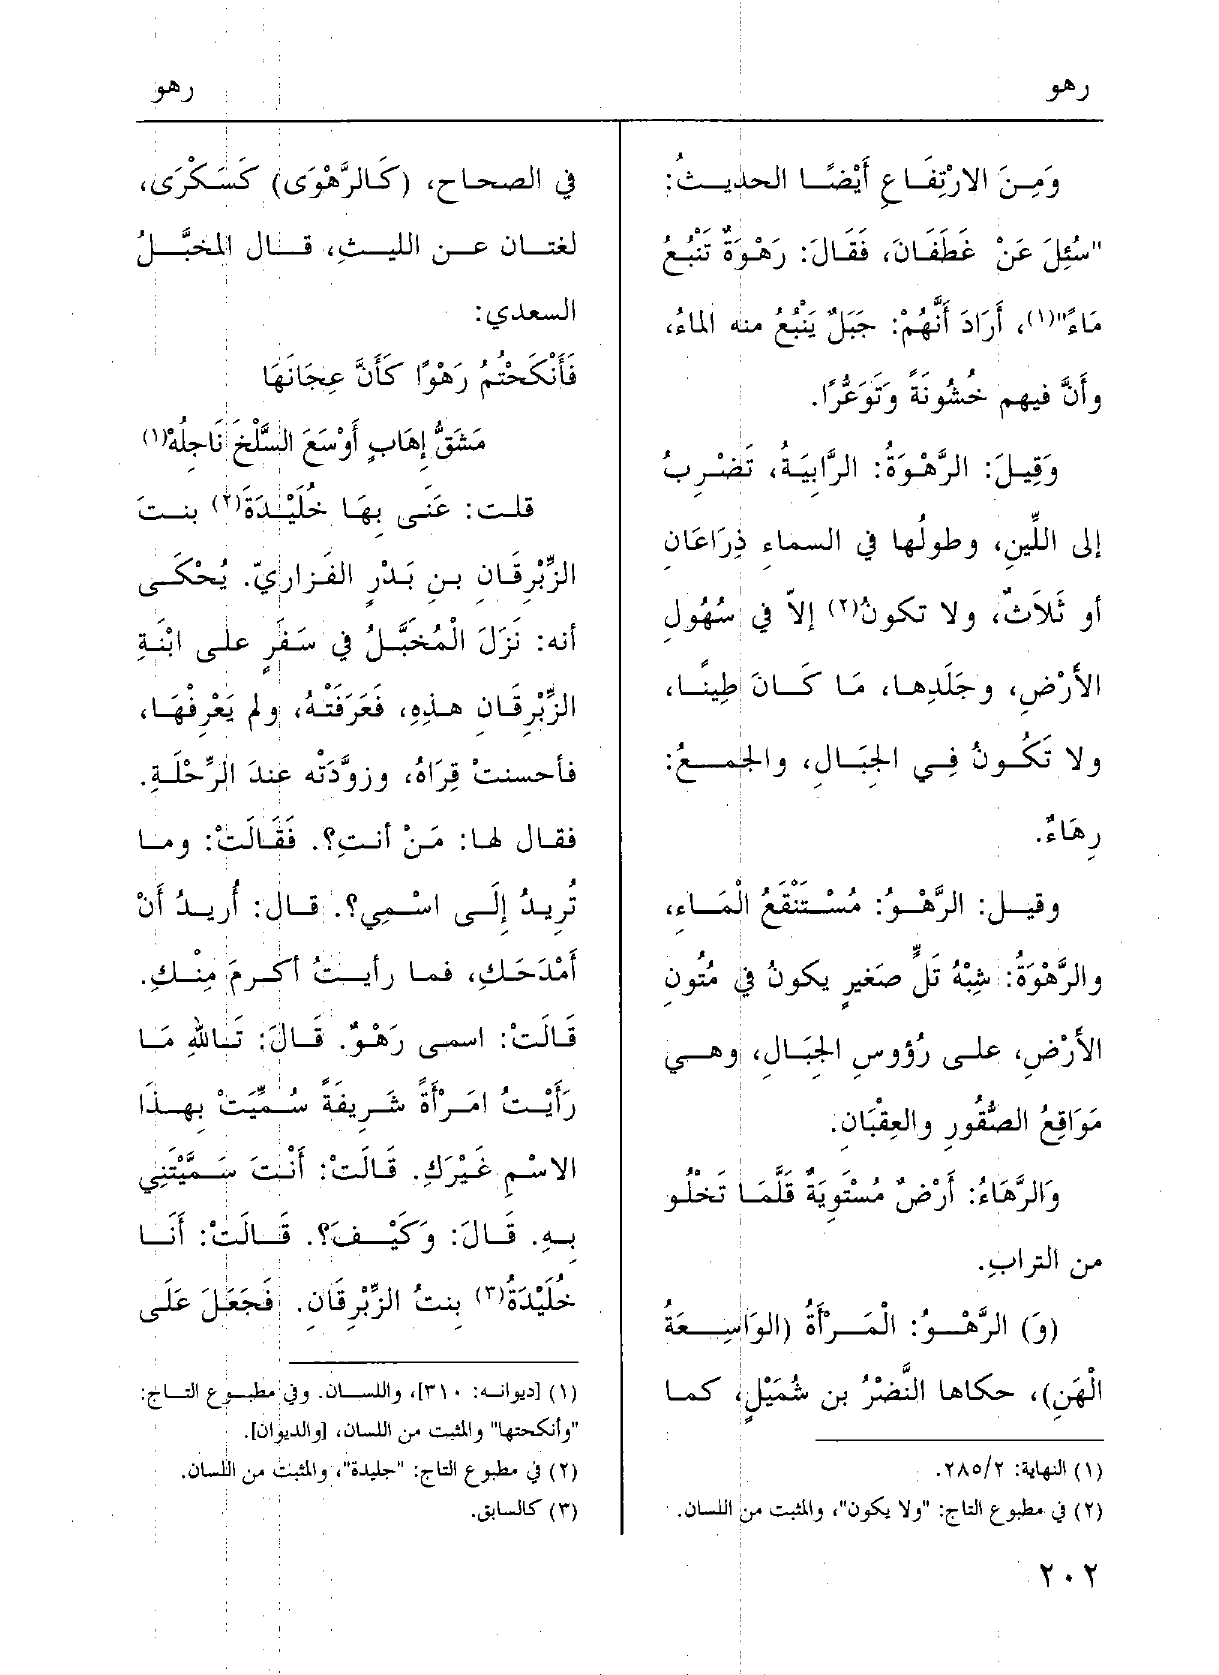 رهو
رهو
وَمِنَ الارْتِفَاعِ أَيْضًا الحديثُ:
"سُئِلَ عَنْ غَطَفَانَ، فَقَالَ: رَهْوَةٌ تَنْبُعُ
مَاءً"(١)، أَرَادَ أَنَّهُمْ: جَبَلٌ يَنْبُعُ منه الماءُ،
وأَنَّ فيهم خُشُونَةً وَتَوَعُّرًا.
وَقِيلَ: الرَّهْوَةُ: الرَّابِيَةُ، تَضْرِبُ
إلى اللِّينِ، وطولُها في السماءِ ذِرَاعَانِ
أو ثَلاَثٌ، ولا تكونُ(٢) إلاّ في سُهُولِ
الأَرْضِ، وجَلَدِها، مَا كَانَ طِينًا،
ولا تَكُونُ فِي الجِبَالِ، والجمعُ:
رِهَاءٌ.
وقيل: الرَّهْوُ: مُسْتَنْقَعُ الْمَاءِ،
والرَّهْوَةُ: شِبْهُ تَلٍّ صَغيرٍ يكونُ في مُتُونِ
الأَرْضِ، على رُؤوسِ الجِبَالِ، وهي
مَوَاقِعُ الصُّقُورِ والعِقْبَانِ.
وَالرَّهَاءُ: أَرْضٌ مُسْتَوِيَةٌ قَلَّمَا تَخْلُو
من الترابِ.
(وَ) الرَّهْوُ: الْمَرْأَةُ (الوَاسِعَةُ
الْهَنِ)، حكاها النَّضْرُ بن شُمَيْلٍ، كما
(١) النهاية: ٢٨٥/٢.
(٢) في مطبوع التاج: "ولا يكون"، والمثبت من اللسان.
في الصحاح، (كَالرَّهْوَى) كَسَكْرَى،
لغتان عن الليثِ، قال المخبَّلُ
السعدي:
فَأَنْكَحْتُمُ رَهْوًا كَأَنَّ عِجَانَهَا
مَشَقُّ إهَابٍ أَوْسَعَ السَّلْخَ نَاجِلُهْ(١)
قلت: عَنَى بِهَا خُلَيْدَةَ(٢) بنتَ
الزِّبْرِقَانِ بنِ بَدْرٍ الفَزاريّ. يُحْكَى
أنه: نَزَلَ الْمُخَبَّلُ في سَفَرٍ على ابْنَةِ
الزِّبْرِقَانِ هذِهِ، فَعَرَفَتْهُ، ولم يَعْرِفْهَا،
فأحسنتْ قِرَاهُ، وزوَّدَته عندَ الرِّحْلَةِ.
فقال لها: مَنْ أنتِ؟. فَقَالَتْ: وما
تُرِيدُ إلَى اسْمِي؟. قال: أُريدُ أَنْ
أَمْدَحَكِ، فما رأيتُ أكرمَ مِنْكِ.
قَالَتْ: اسمى رَهْوٌ. قَالَ: تَاللهِ مَا
رَأَيْتُ امْرَأَةً شَرِيفَةً سُمِّيَتْ بِهذَا
الاسْمِ غَيْرَكِ. قَالَتْ: أَنْتَ سَمَّيْتَنِي
بِهِ. قَالَ: وَكَيْفَ؟. قَالَتْ: أَنَا
خُلَيْدَةُ(٣) بنتُ الزِّبْرِقَانِ. فَجَعَلَ عَلَى
(١) [ديوانه: ٣١٠]، واللسان. وفي مطبوع التاج:
"وأنكحتها" والمثبت من اللسان، [والديوان].
(٢) في مطبوع التاج: "جليدة"، والمثبت من اللسان.
(٣) كالسابق.
٢٠٢